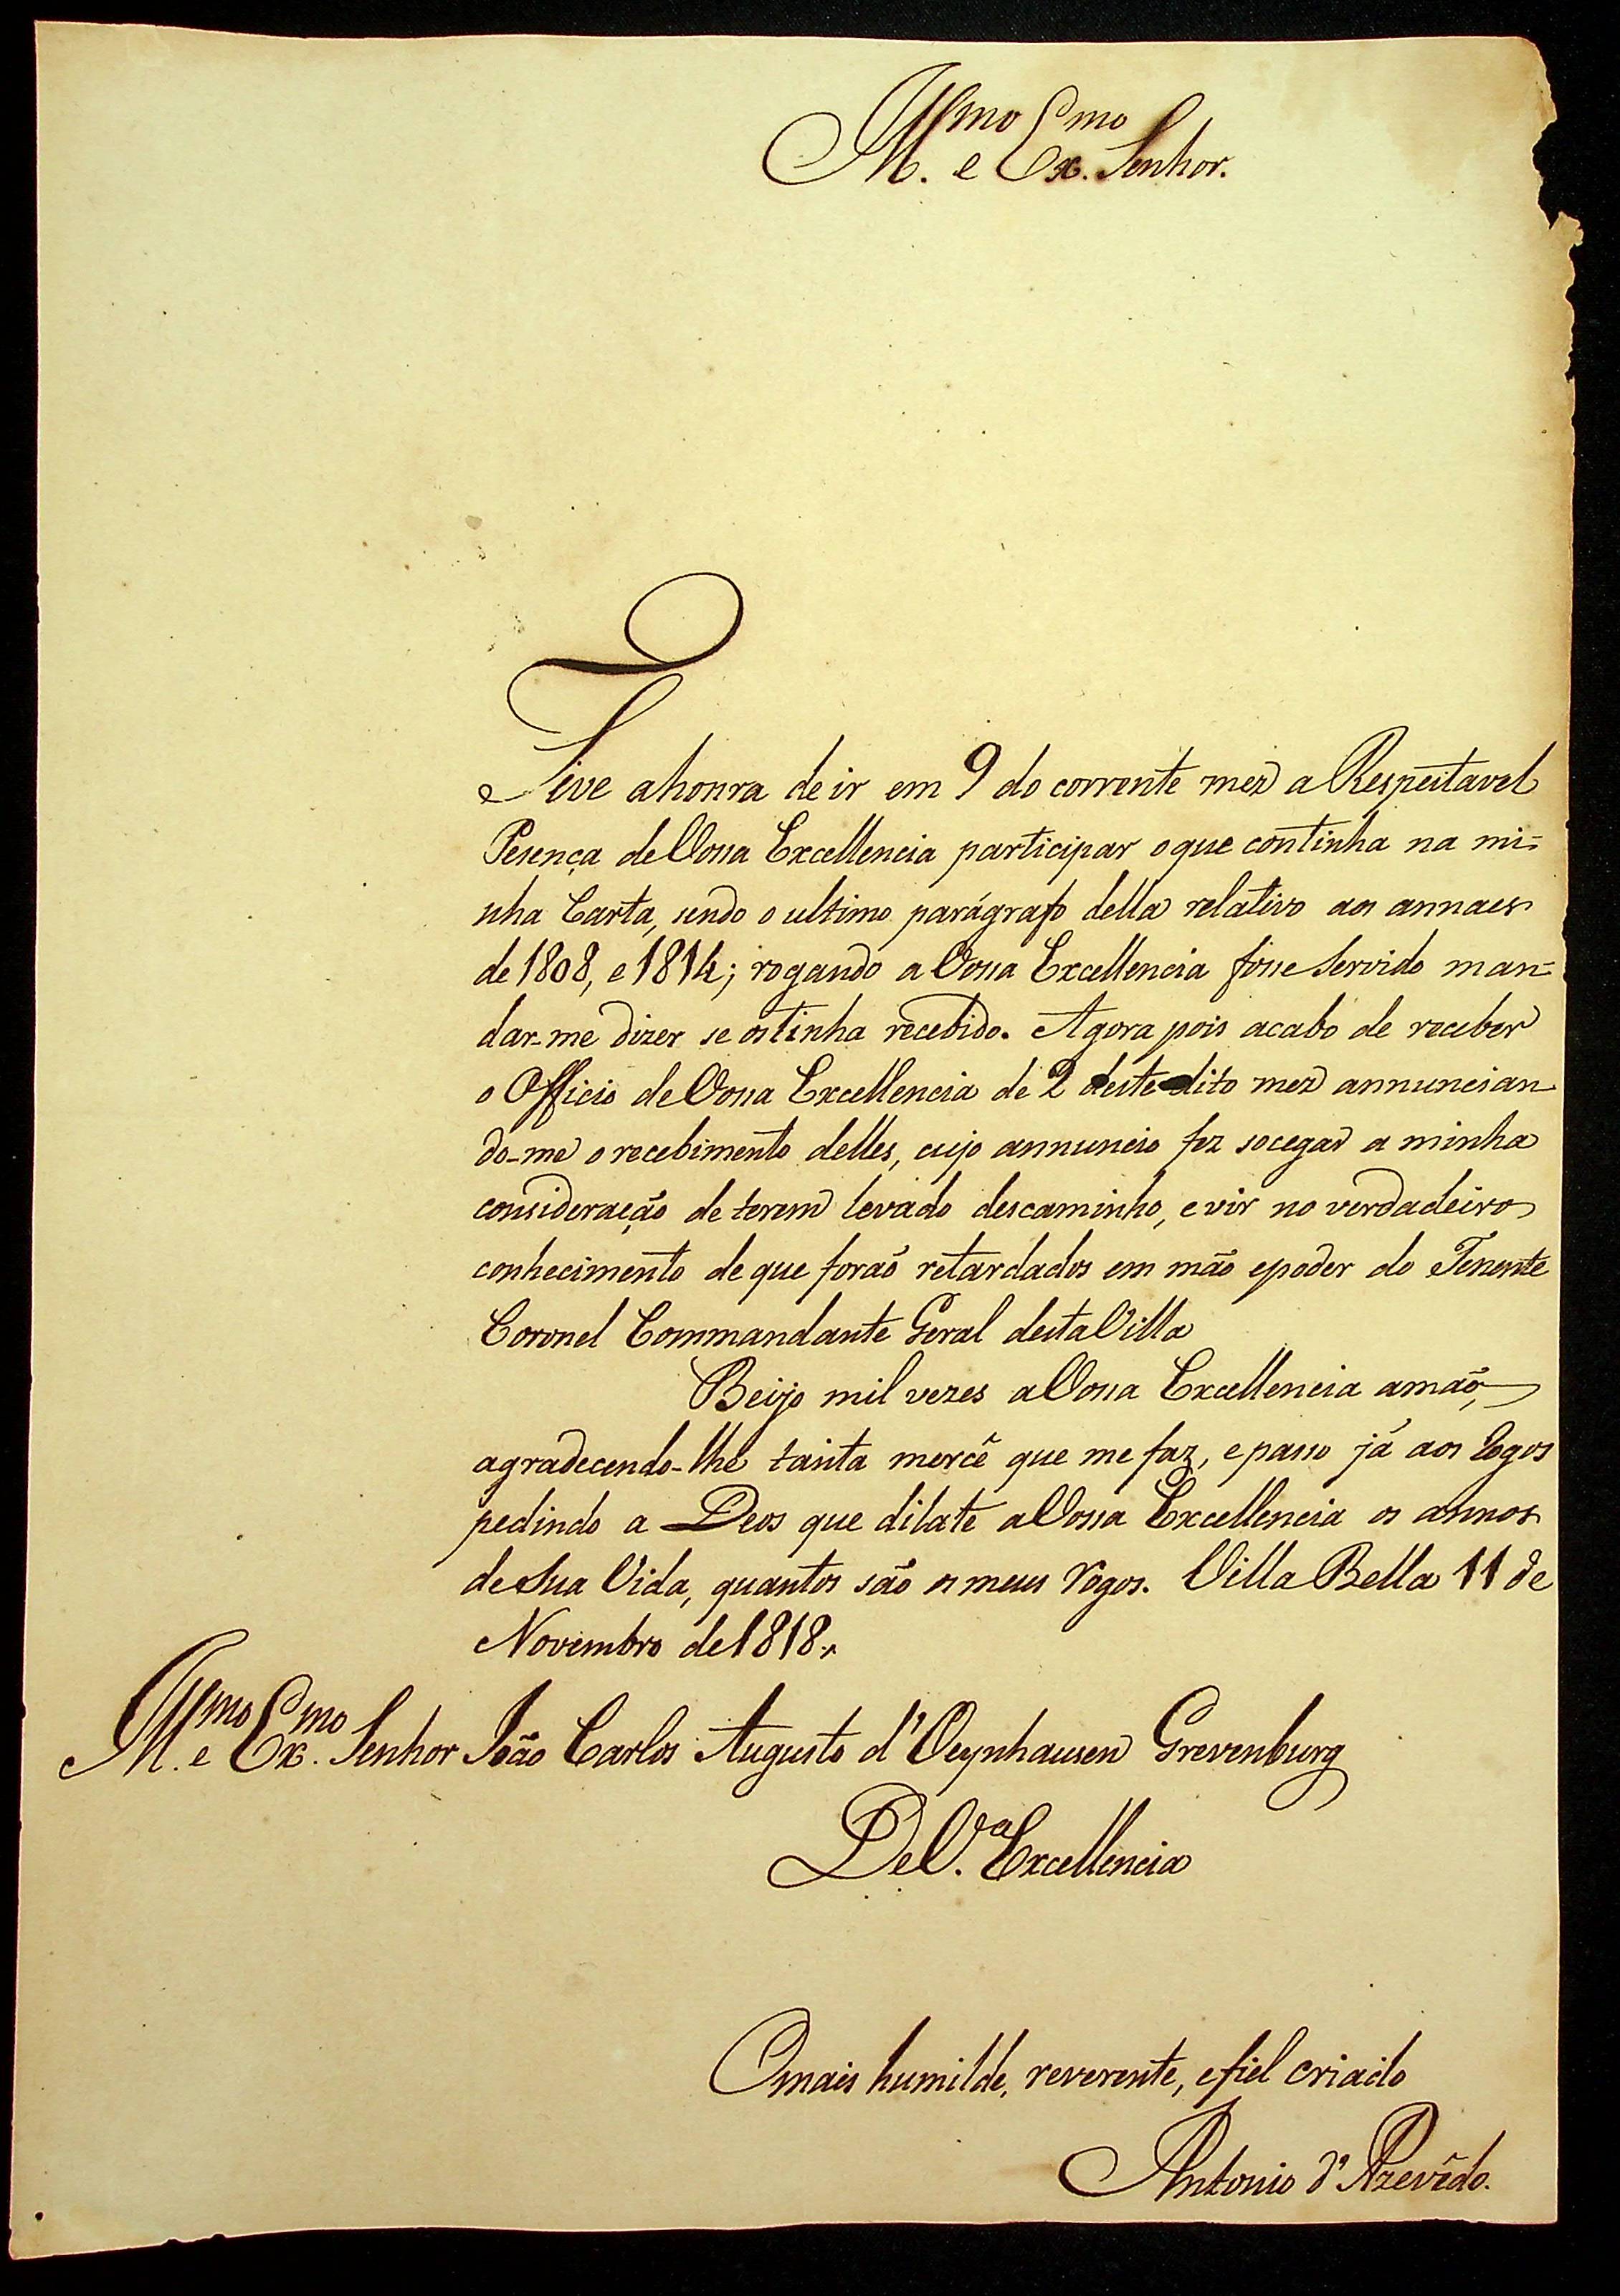 Ill.mo e Ex.mo Senhor.
Tive a honra de ir em 9 do corrente mez a Respeitavel
Pesença de Vossa Excellencia participar o que continha na mi=
nha Carta, sendo o ultimo parágrafo della relativo aos annaes
de 1808, e 1814; rogando a Vossa Excellencia fosse Servido man=
dar-me dizer se os tinha recebido. Agora pois acabo de receber
o Officio de Vossa Excellencia de 2 deste dito mez annuncian
do-me o recebimento delles, cujo annuncio fez socegar a minha
consideração de terem levado descaminho, e vir no verdadeiro
conhecimento de que forão retardados em mão e poder do Tenente
Coronel Commandante Geral desta Villa
Beijo mil vezes a Vossa Excellencia a mão,
agradecendo-lhe tanta mercê que me faz, e passo já aos rogos
pedindo a Deos que dilate a Vossa Excellencia os annos
de Sua Vida, quantos são os meus rogos. Villa Bella 11 de
Novembro de 1818.
Ill.mo e Ex.mo Senhor João Carlos Augusto d'Oeynhausen Grevenburg
De V.a Excellencia
O mais humilde, reverente, e fiel criado
Antonio d'Azevêdo.